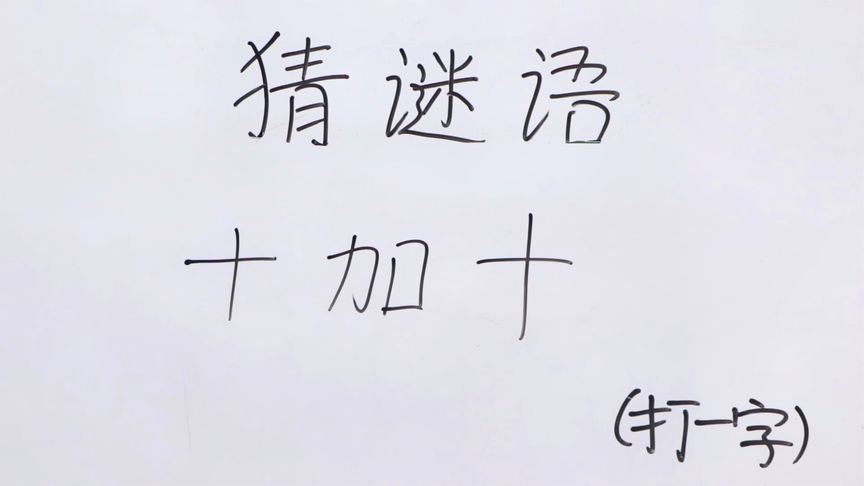 猜谜语
十加十
(打一字)